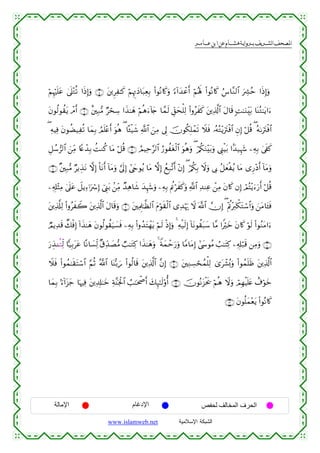 المصحف الشريف برواية هشام عن ابن عامر
وَإِذَا حُشِرَ ٱلنَّاسُ كَانُوا۟ لَهُمْ أَعْدَآءً وَكَانُوا۟ بِعِبَادَتِهِمْ كَٰفِرِينَ ﴿٦﴾ وَإِذَا تُتْلَىٰ عَلَيْهِمْ
ءَايَٰتُنَا بَيِّنَٰتٍ قَالَ ٱلَّذِينَ كَفَرُوا۟ لِلْحَقِّ لَمَّا جَآءَهُمْ هَٰذَا سِحْرٌ مُّبِينٌ ﴿٧﴾ أَمْ يَقُولُونَ
ٱفْتَرَىٰهُ قُلْ إِنِ ٱفْتَرَيْتُهُۥ فَلَا تَمْلِكُونَ لِى مِنَ ٱللَّهِ شَيْـًٔا هُوَ أَعْلَمُ بِمَا تُفِيضُونَ فِيهِ
كَفَىٰ بِهِۦ شَهِيدًۢا بَيْنِى وَبَيْنَكُمْ وَهُوَ ٱلْغَفُورُ ٱلرَّحِيمُ ﴿٨﴾ قُلْ مَا كُنتُ بِدْعًا مِّنَ ٱلرُّسُلِ
وَمَآ أَدْرِى مَا يُفْعَلُ بِى وَلَا بِكُمْ إِنْ أَتَّبِعُ إِلَّا مَا يُوحَىٰٓ إِلَىَّ وَمَآ أَنَا۠ إِلَّا نَذِيرٌ مُّبِينٌ ﴿٩﴾
قُلْ أَرَءَيْتُمْ إِن كَانَ مِنْ عِندِ ٱللَّهِ وَكَفَرْتُم بِهِۦ وَشَهِدَ شَاهِدٌ مِّنۢ بَنِىٓ إِسْرَٰٓءِيلَ عَلَىٰ مِثْلِهِۦ
فَـَٔامَنَ وَٱسْتَكْبَرْتُمْ إِنَّ ٱللَّهَ لَا يَهْدِى ٱلْقَوْمَ ٱلظَّٰلِمِينَ ﴿١٠﴾ وَقَالَ ٱلَّذِينَ كَفَرُوا۟ لِلَّذِينَ
ءَامَنُوا۟ لَوْ كَانَ خَيْرًا مَّا سَبَقُونَآ إِلَيْهِ وَإِذْ لَمْ يَهْتَدُوا۟ بِهِۦ فَسَيَقُولُونَ هَٰذَآ إِفْكٌ قَدِيمٌ
﴿١١﴾ وَمِن قَبْلِهِۦ كِتَٰبُ مُوسَىٰٓ إِمَامًا وَرَحْمَةً وَهَٰذَا كِتَٰبٌ مُّصَدِّقٌ لِّسَانًا عَرَبِيًّا لِّتُنذِرَ
ٱلَّذِينَ ظَلَمُوا۟ وَبُشْرَىٰ لِلْمُحْسِنِينَ ﴿١٢﴾ إِنَّ ٱلَّذِينَ قَالُوا۟ رَبُّنَا ٱللَّهُ ثُمَّ ٱسْتَقَٰمُوا۟ فَلَا
خَوْفٌ عَلَيْهِمْ وَلَا هُمْ يَحْزَنُونَ ﴿١٣﴾ أُو۟لَٰٓئِكَ أَصْحَٰبُ ٱلْجَنَّةِ خَٰلِدِينَ فِيهَا جَزَآءًۢ بِمَا
كَانُوا۟ يَعْمَلُونَ ﴿١٤﴾
الحرف المخالف لحفص الإدغام الإمالة
الشبكة الإسلامية www.islamweb.net